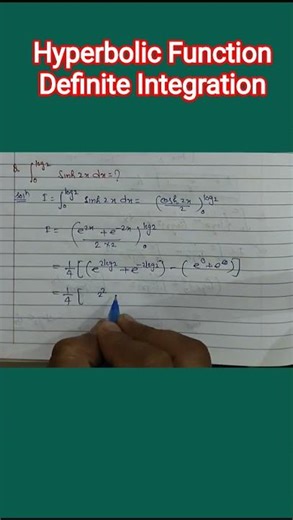 Hyperbolic Function
Definite Integration
Q. ∫₀^{log2} Sinh 2x dx = ?
Solⁿ I = ∫₀^{log2} Sinh 2x dx = (cosh 2x / 2)₀^{log2}
I = (e^{2x} + e^{-2x} / 2×2)₀^{log2}
= 1/4 [(e^{2log2} + e^{-2log2}) - (e⁰ + e⁰)]
= 1/4 [ 2²